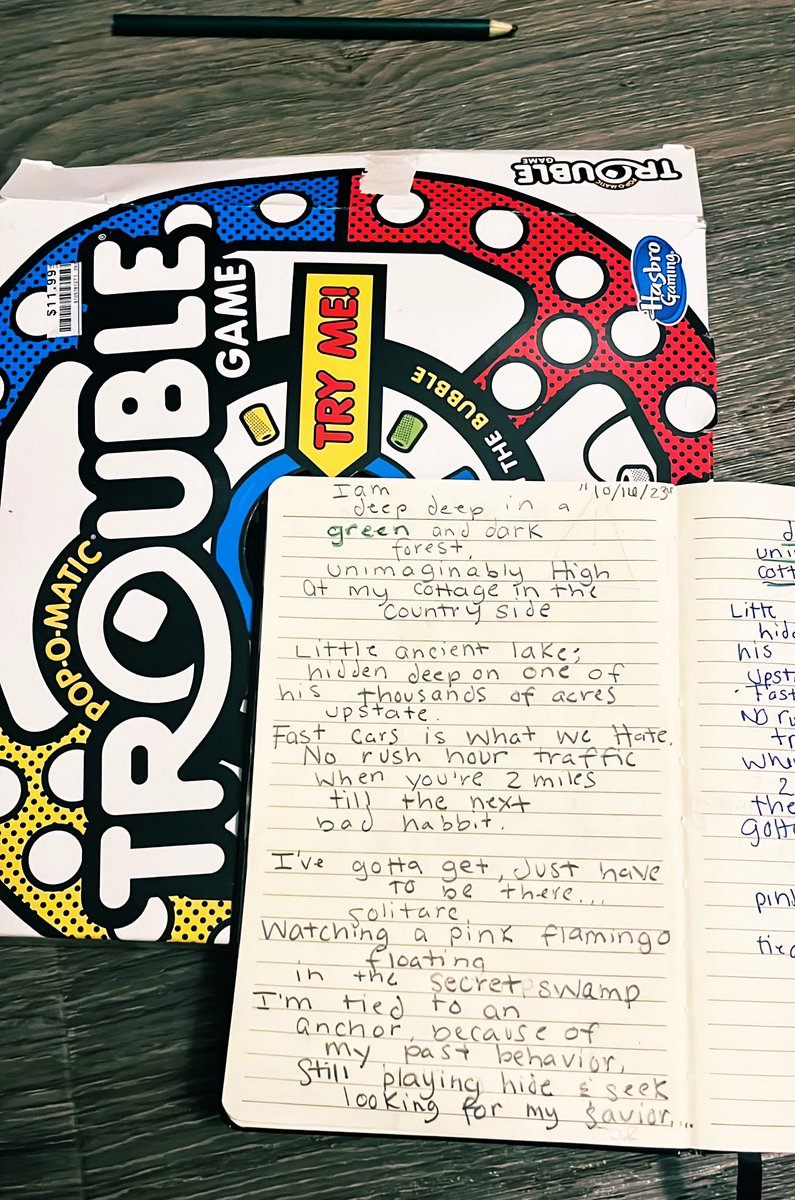 TROUBLE
POP-O-MATIC
GAME
Hasbro
Gaming
$11.99
TROUBLE
GAME
POP-O-MATIC®
TRY ME!
THE BUBBLE
I am
deep deep in a
green and dark
forest,
unimaginably High
at my cottage in the
country side
Little ancient lake;
hidden deep on one of
his thousands of acres
upstate.
Fast cars is what we Hate.
No rush hour traffic
when you're 2 miles
till the next
bad habbit.
I've gotta get, Just have
to be there...
solitare,
Watching a pink flamingo
floating
in the secret swamp
I'm tied to an
anchor, because of
my past behavior,
Still playing hide & seek
looking for my savior,...
"10/16/23"
d
uni
cott
Littl
hidd
his
upst
Fast
No ru
tr
When
2
the
gotta
pink